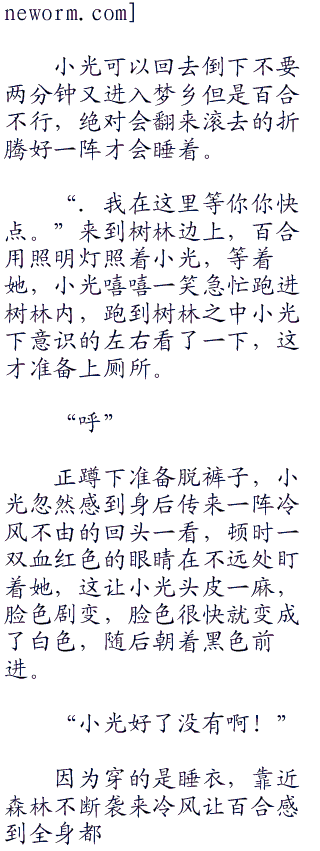 neworm.com]
小光可以回去倒下不要
两分钟又进入梦乡但是百合
不行，绝对会翻来滚去的折
腾好一阵才会睡着。
“．我在这里等你你快
点。”来到树林边上，百合
用照明灯照着小光，等着
她，小光嘻嘻一笑急忙跑进
树林内，跑到树林之中小光
下意识的左右看了一下，这
才准备上厕所。
“呼”
正蹲下准备脱裤子，小
光忽然感到身后传来一阵冷
风不由的回头一看，顿时一
双血红色的眼睛在不远处盯
着她，这让小光头皮一麻，
脸色剧变，脸色很快就变成
了白色，随后朝着黑色前
进。
“小光好了没有啊！”
因为穿的是睡衣，靠近
森林不断袭来冷风让百合感
到全身都